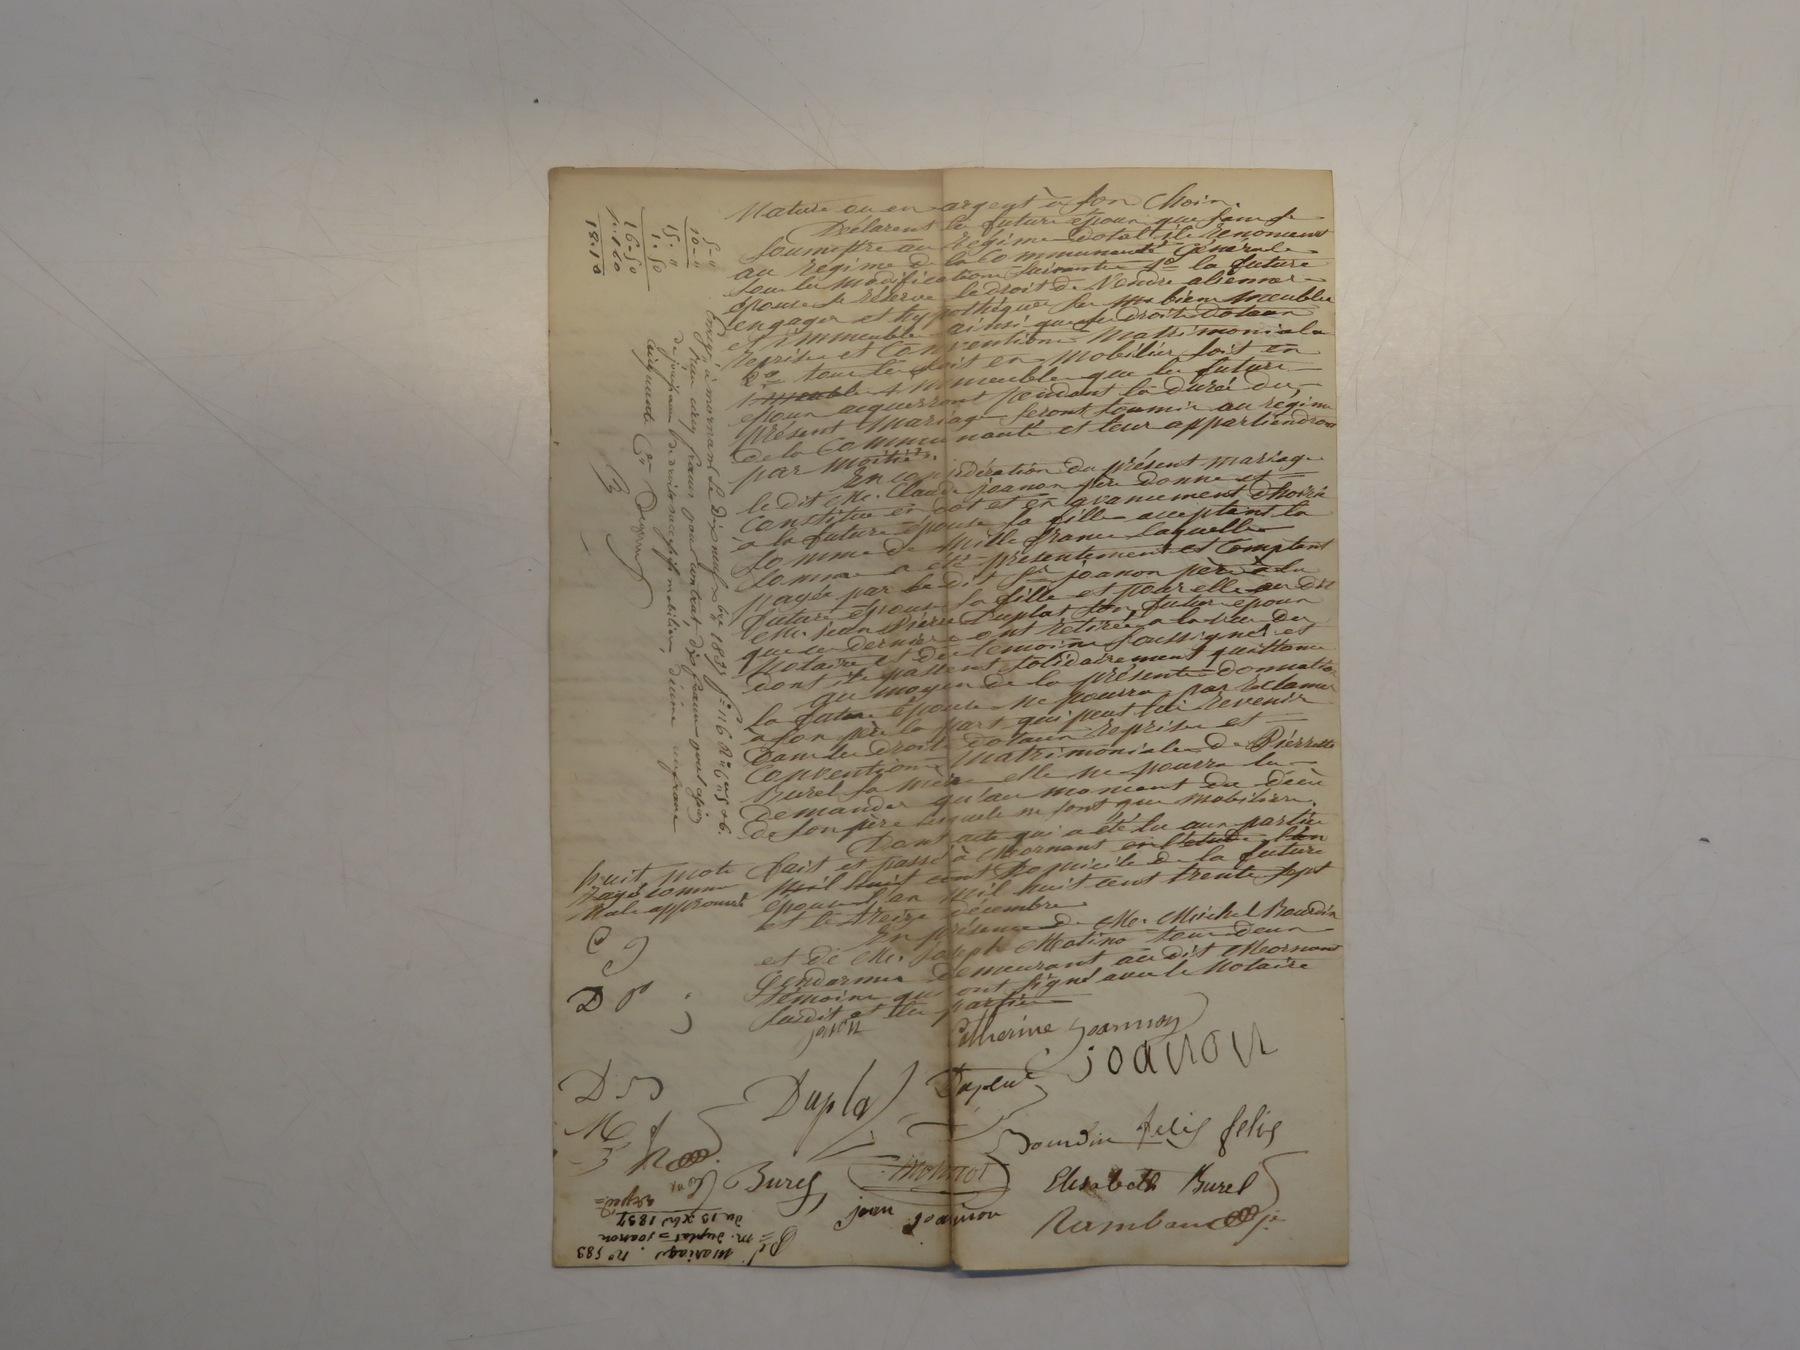 Nature ou en argent à son choix.
Déclarent les futurs époux que sans se
soumettre au régime dotal ils renoncent
au régime de la Communauté Générale
sous les modifications suivantes 1o la future
épouse se réserve le droit de Vendre aliéner
engager et hypothéquer ses biens meubles
et immeubles ainsi que ses droits dotaux
reprises et Conventions Matrimoniales
2o tous les soit en Mobilier soit en
immeubles que les futurs
époux acquerront pendant la durée du
présent Mariage seront soumis au régime
de la Communauté et leur appartiendront
par moitié.
En Considération du présent mariage
le dit Me. Claude joanon père donne et
Constitue en dot et en avancement d'hoirie
à la future épouse sa fille acceptant la
somme de Mille francs laquelle
somme a été présentement et Comptant
payée par le dit Sr joanon père à la
future épouse sa fille et pour elle au dit
Me. jean Pierre Duplat son futur époux
que ces derniers ont retirée à la vue du
Notaire et des témoins soussignés et
dont ils passent solidairement quittance
au moyen de la présente donnation
la future épouse ne pourra pas réclamer
à son père la part qui peut lui revenir
dans les droits dotaux reprises et
Conventions Matrimoniales de Pierrette
Burel sa mère elle ne pourra les
demander qu'au moment du décès
de son père lesquels ne sont que mobiliers.
Dont acte qui a été lu aux parties
fait et passé à Mornant en l'étude l'an
Mil huit cent domicile de la future
épouse l'an Mil huit cent trente sept
et le treize décembre
En présence de Me. Michel Bourdin
et de Me. Joseph Matino tous deux
Gendarmes demeurant au dit Mornant
témoins qui ont signé avec le Notaire
susdit et les parties
huit mots
rayés comme
nuls approuvés
5-"
10-"
15-"
1-50
16-50
1-60
18-10
Enregé à mornant le dix neuf xbre 1837 fo 116
reçu cinq francs pour contrat, dix francs pour
de droits successifs mobiliers, décime un franc
cinquante Cmes
C J
D P
D
M
Catherine joannon
joanon
Duplat
Duplat
Bourdin felix felix
Burel
Elisabeth Burel
jean joannon
Rambaud je
Mariage. no 583
M. Duplat = joanon
du 13 xbre 1837